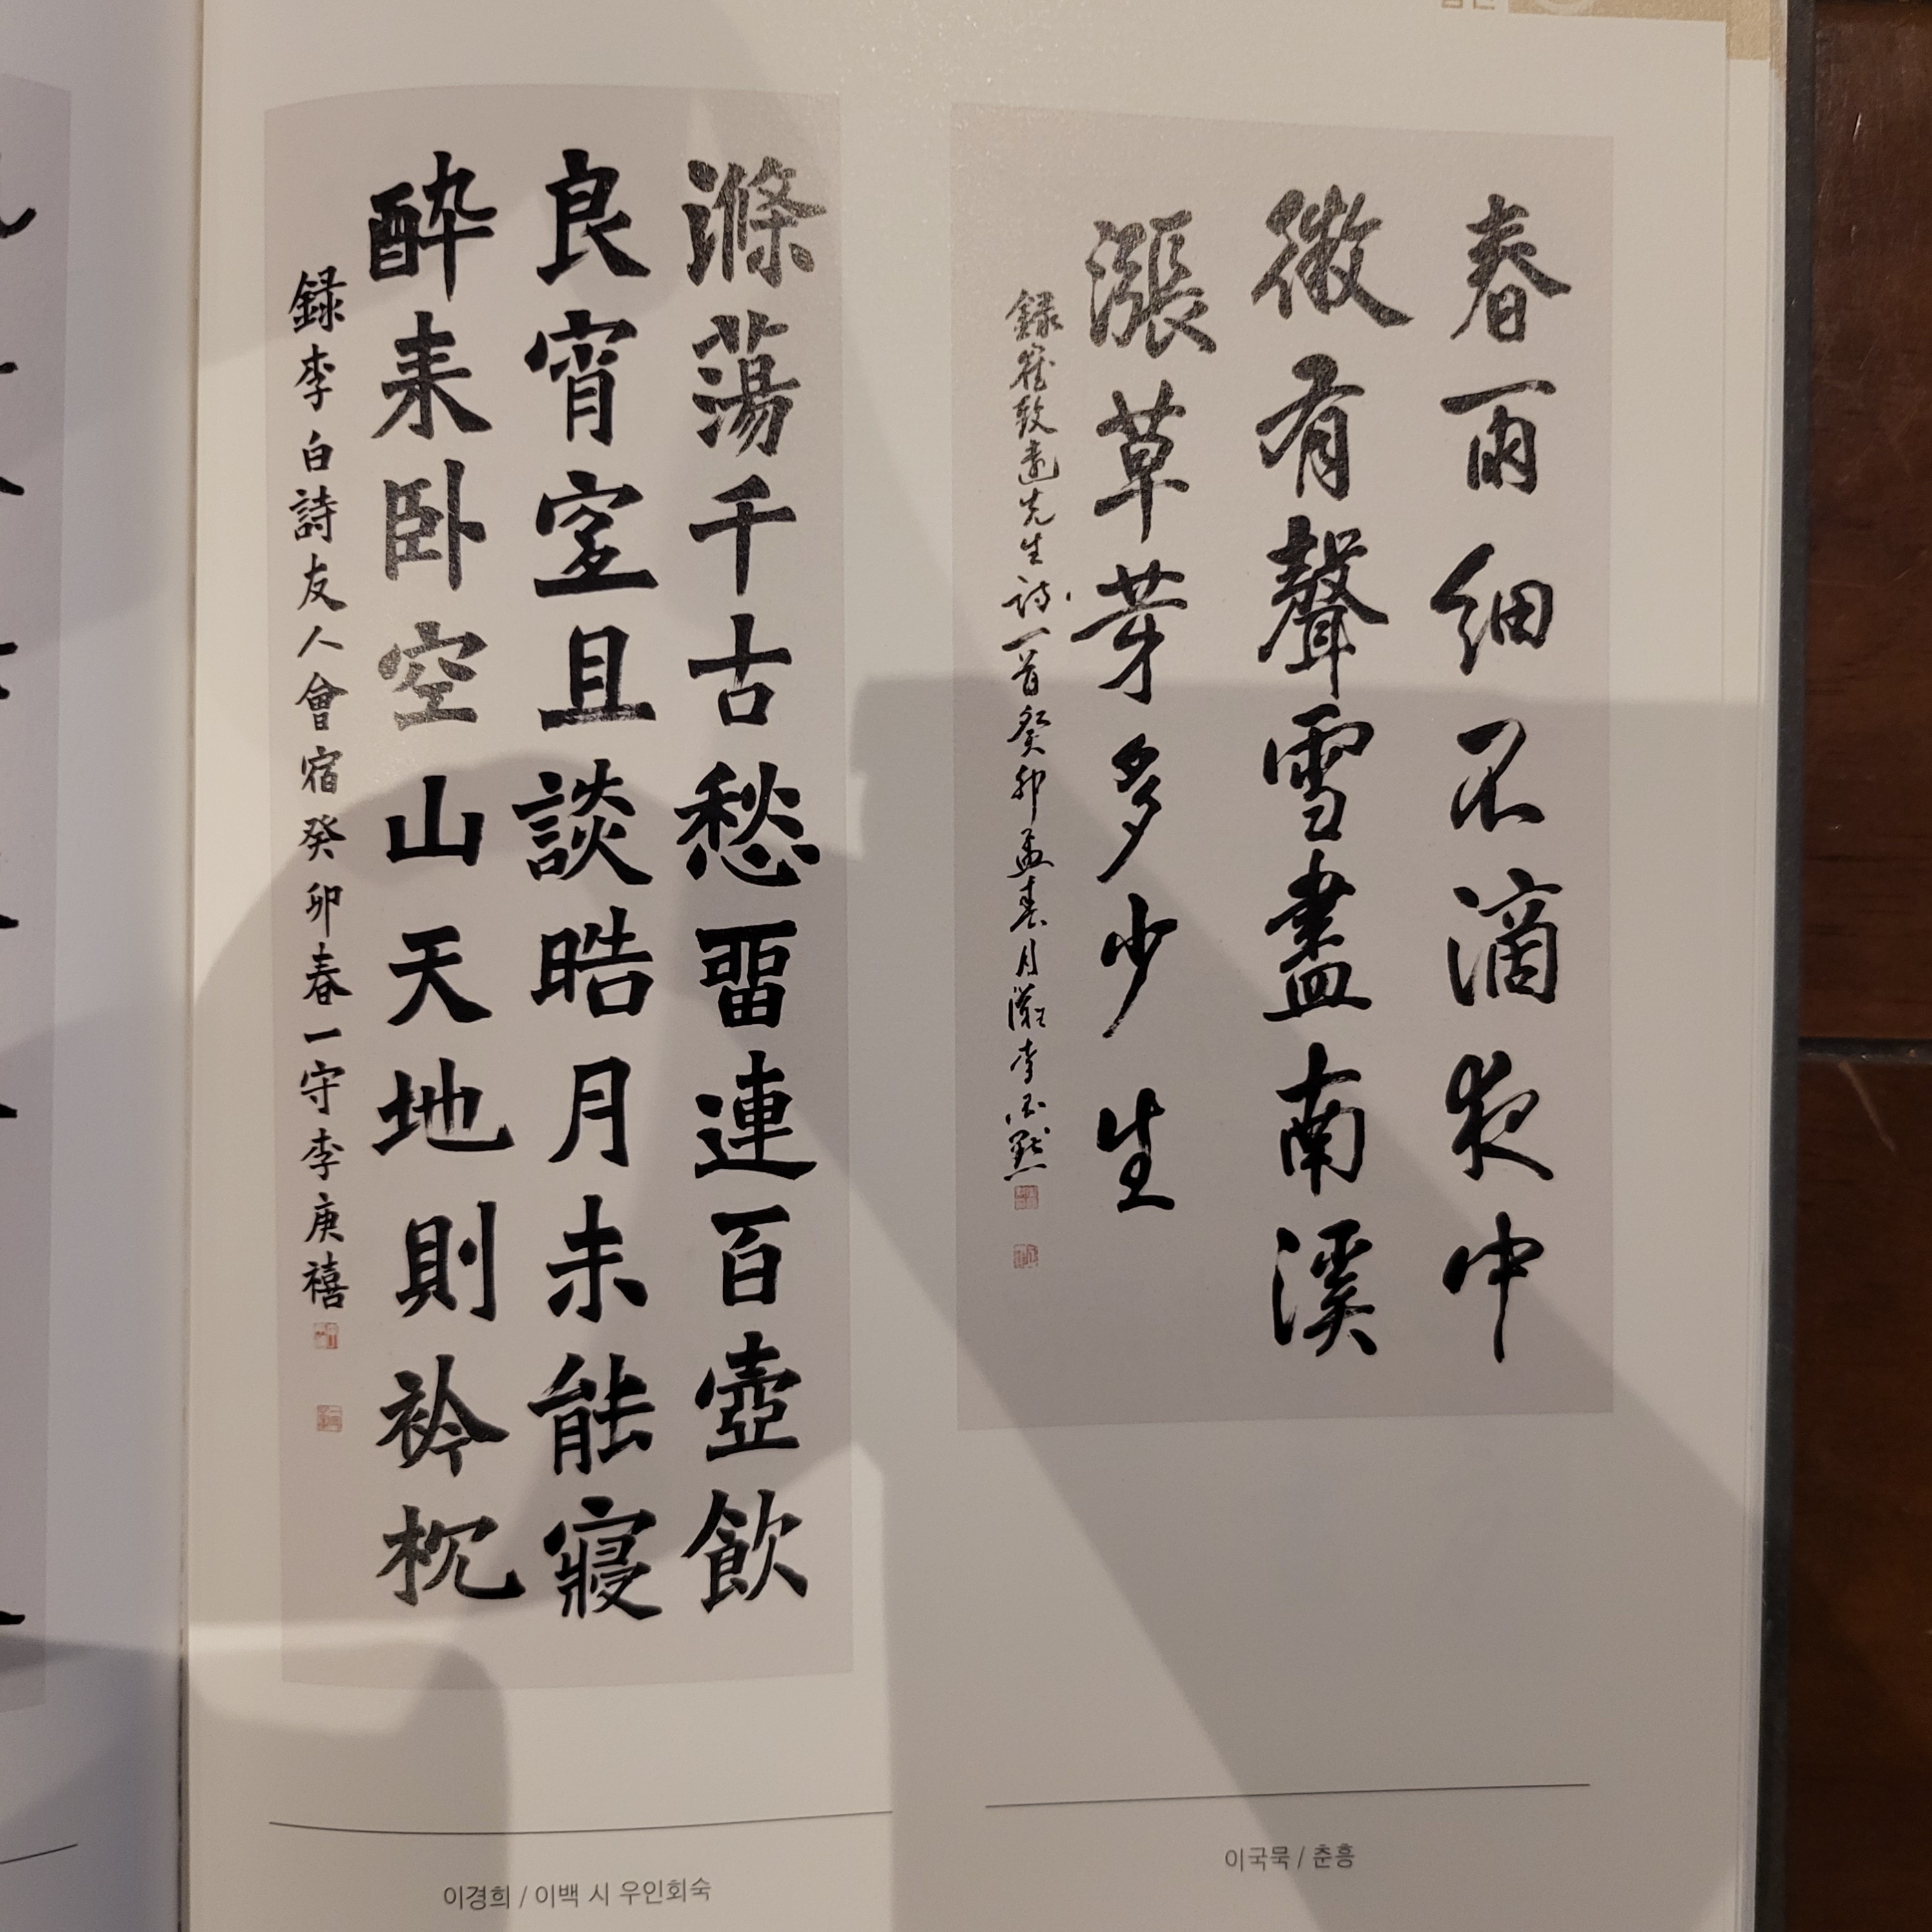 春雨細不滴夜中
微有聲雪盡南溪
漲草芽多少生
録崔致遠先生詩一首癸卯孟春月李国默
이국묵 / 춘흥
滌蕩千古愁留連百壺飲
良宵宜且談晧月未能寢
醉来卧空山天地則衿枕
録李白詩友人會宿癸卯春一守李庚禧
이경희 / 이백 시 우인회숙